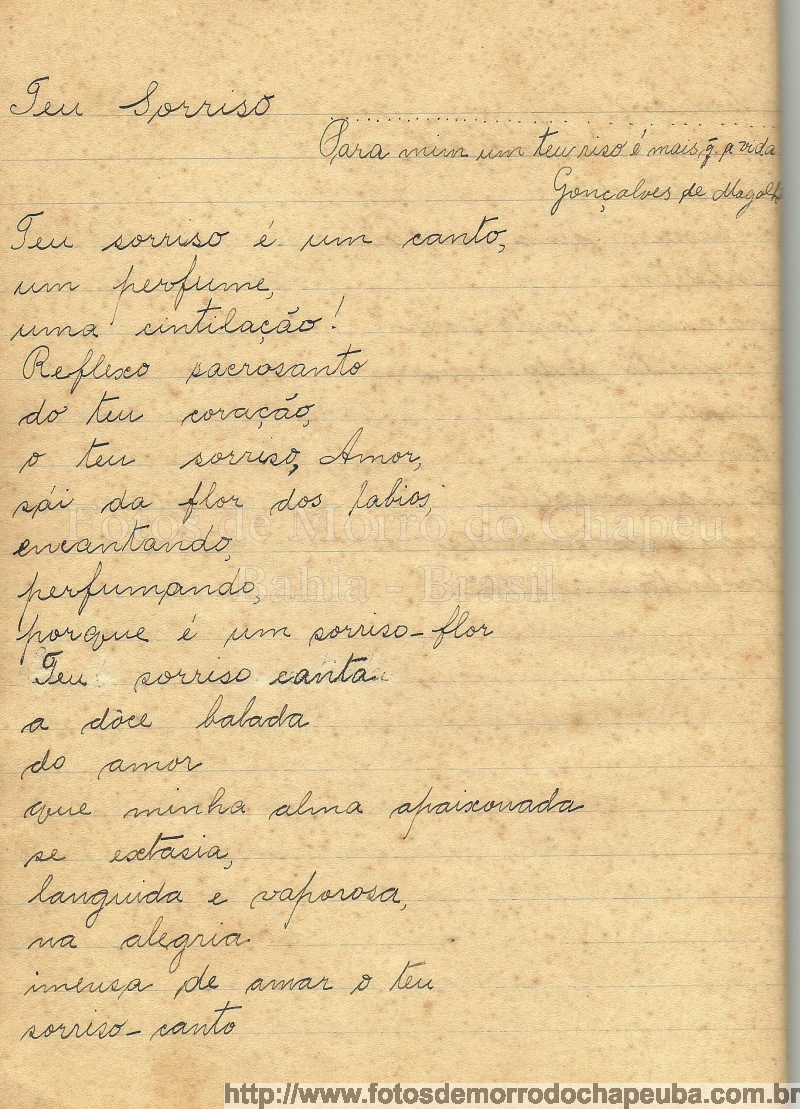 Teu Sorriso
Para mim um teu riso é mais q̃ a vida
Gonçalves de Magalh
Teu sorriso é um canto,
um perfume,
uma cintilação!
Reflexo sacrosanto
do teu coração,
o teu sorriso, Amor,
sái da flor dos labios,
encantando,
perfumando,
porque é um sorriso-flor
Teu sorriso canta
a dôce balada
do amor
que minha alma apaixonada
se extasia,
languida e vaporosa,
na alegria
imensa de amar o teu
sorriso-canto
Fotos de Morro do Chapéu
Bahia - Brasil
http://www.fotosdemorrodochapeuba.com.br